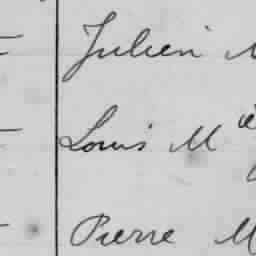 Julien M
Louis M ie
Pierre M